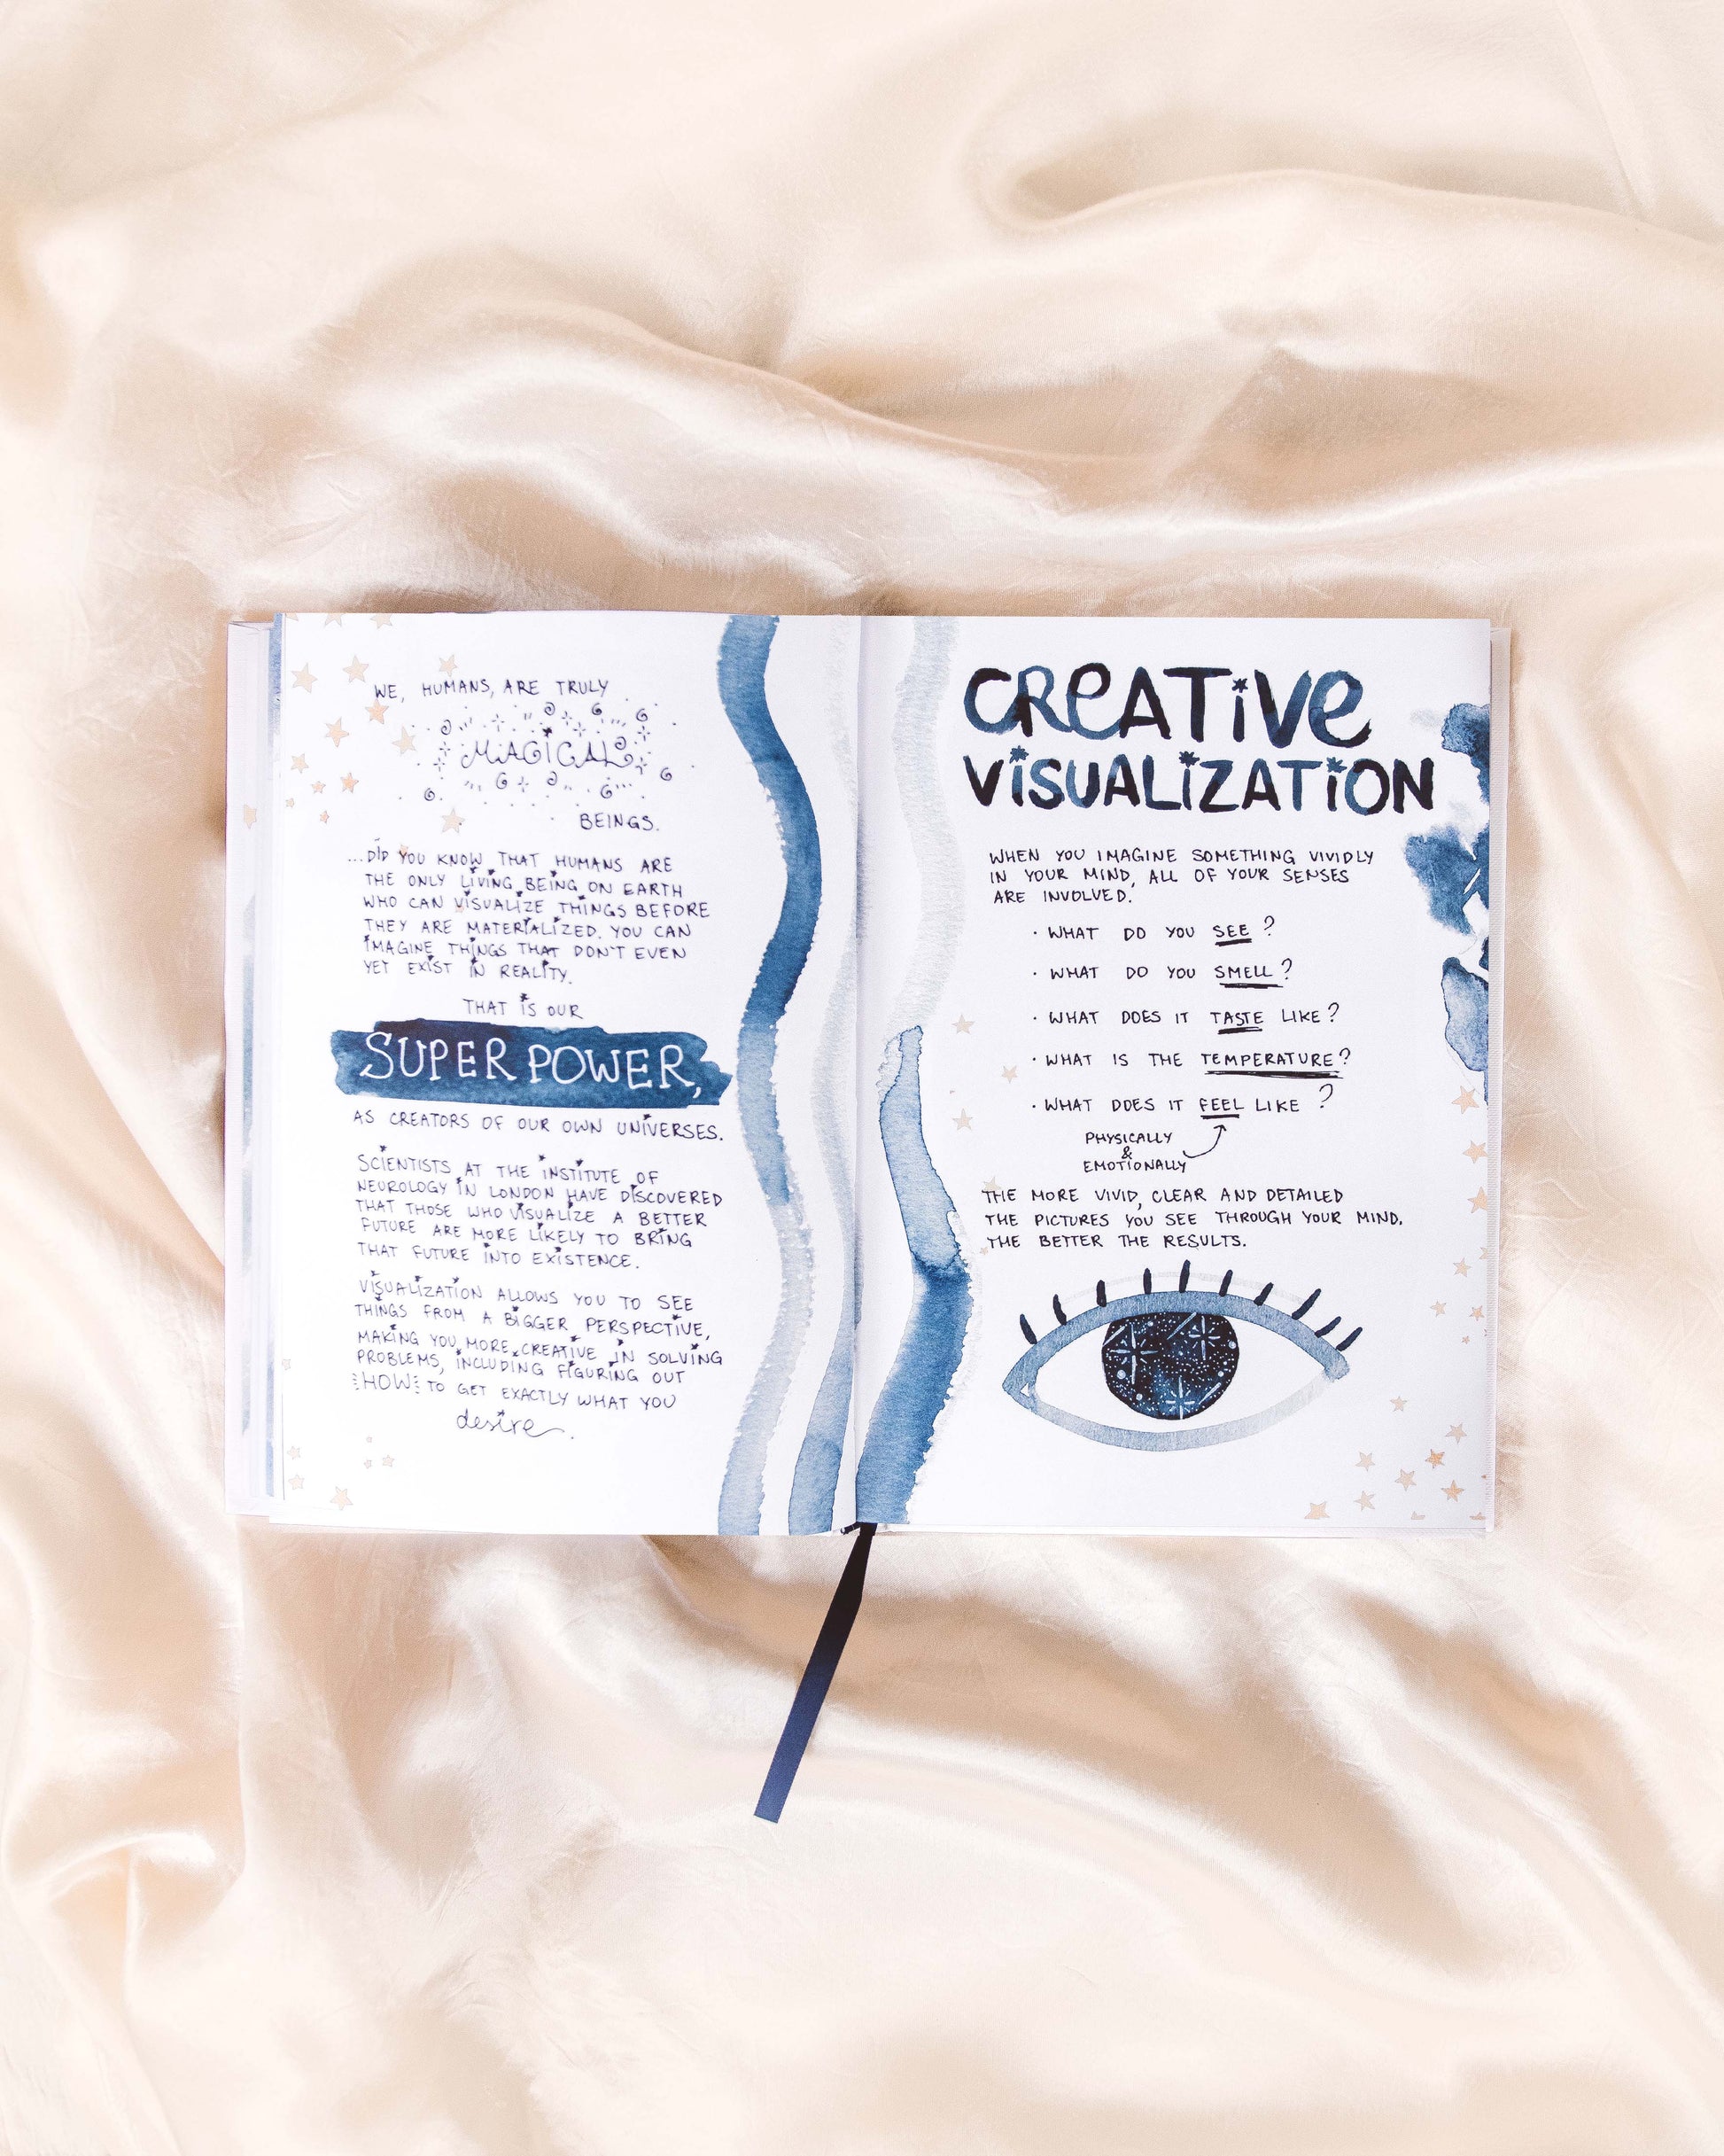 WE, HUMANS, ARE TRULY
MAGICAL
BEINGS.
...DID YOU KNOW THAT HUMANS ARE
THE ONLY LIVING BEING ON EARTH
WHO CAN VISUALIZE THINGS BEFORE
THEY ARE MATERIALIZED. YOU CAN
IMAGINE THINGS THAT DON'T EVEN
YET EXIST IN REALITY.
THAT IS OUR
SUPER POWER,
AS CREATORS OF OUR OWN UNIVERSES.
SCIENTISTS AT THE INSTITUTE OF
NEUROLOGY IN LONDON HAVE DISCOVERED
THAT THOSE WHO VISUALIZE A BETTER
FUTURE ARE MORE LIKELY TO BRING
THAT FUTURE INTO EXISTENCE.
VISUALIZATION ALLOWS YOU TO SEE
THINGS FROM A BIGGER PERSPECTIVE,
MAKING YOU MORE CREATIVE IN SOLVING
PROBLEMS, INCLUDING FIGURING OUT
HOW TO GET EXACTLY WHAT YOU
desire.
CREATIVE
VISUALIZATION
WHEN YOU IMAGINE SOMETHING VIVIDLY
IN YOUR MIND, ALL OF YOUR SENSES
ARE INVOLVED.
· WHAT DO YOU SEE?
· WHAT DO YOU SMELL?
· WHAT DOES IT TASTE LIKE?
· WHAT IS THE TEMPERATURE?
· WHAT DOES IT FEEL LIKE?
PHYSICALLY
&
EMOTIONALLY
THE MORE VIVID, CLEAR AND DETAILED
THE PICTURES YOU SEE THROUGH YOUR MIND,
THE BETTER THE RESULTS.